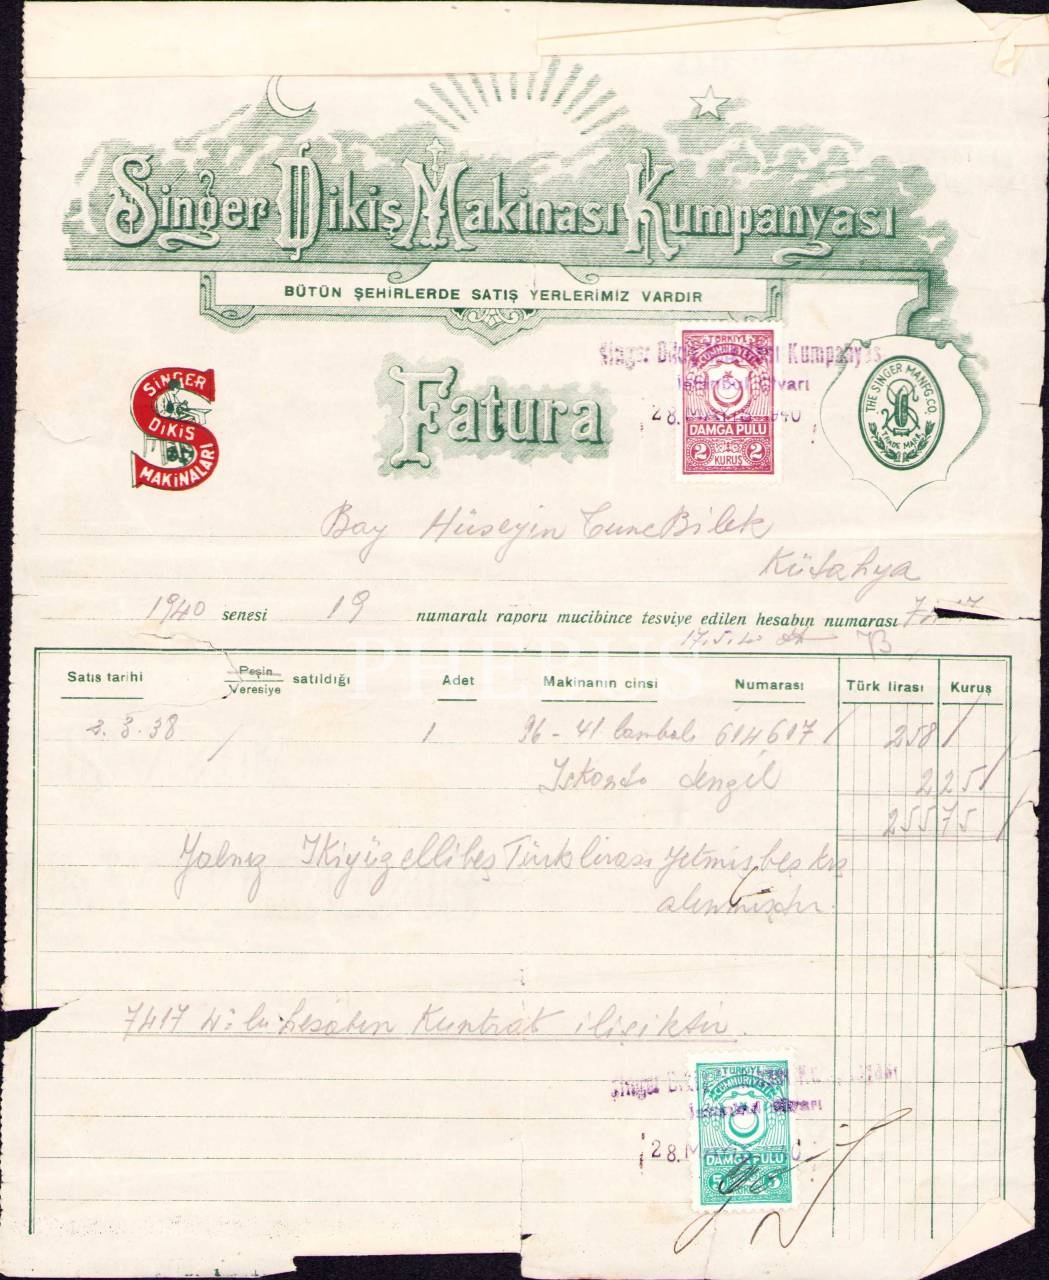 Singer Dikiş Makinası Kumpanyası
BÜTÜN ŞEHİRLERDE SATIŞ YERLERİMİZ VARDIR
Fatura
SİNGER
DİKİŞ
MAKİNALARI
Singer Kumpanyas
28. 1940
TÜRKİYE
CUMHURİYETİ
DAMGA PULU
2 KURUŞ 2
THE SINGER MANFG. CO.
TRADE MARK
Bay Hüseyin TuncBilek
Kütahya
1940 senesi 19 numaralı raporu mucibince tesviye edilen hesabın numarası
17.5.40
PHEBUS
Satış tarihi Peşin Veresiye satıldığı Adet Makinanın cinsi Numarası Türk lirası Kuruş
3.38 1 96-41 614617 258
İskonto 2 25
255 75
Yalnız İkiyüzellibeş Türklirası Yetmişbeş krş
alınmıştır.
7417 No: lu hesabın Kuntratı ilişiktir.
Singer
28. M
TÜRKİYE
CUMHURİYETİ
DAMGA PULU
5 5